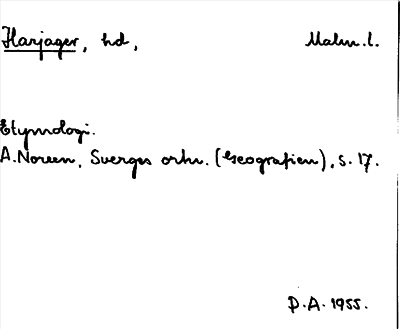 Harjager, hd, Malm. l.
Etymologi.
A. Noreen, Sverges ortn. (Geografien), s. 17.
D.A. 1955.